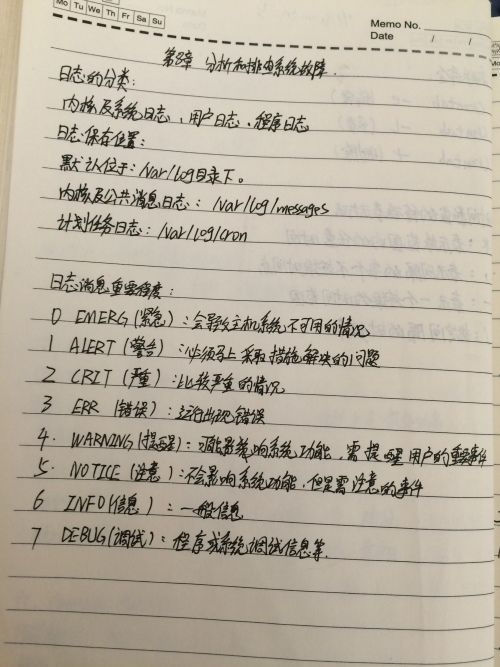 Mo Tu We Th Fr Sa Su
Memo No.
Date / /
第8章 分析和排查系统故障.
日志的分类:
内核及系统日志、用户日志、程序日志
日志保存位置:
默认位于: /var/log目录下。
内核及公共消息日志: /var/log/messages
计划任务日志: /var/log/cron
日志消息重要程度:
0 EMERG(紧急): 会导致主机系统不可用的情况
1 ALERT(警告): 必须马上采取措施解决的问题
2 CRIT(严重): 比较严重的情况
3 ERR (错误): 运行出现错误
4. WARNING(提醒): 可能影响系统功能, 需提醒用户的重要事件
5. NOTICE(注意): 不会影响系统功能, 但是需注意的事件
6 INFO(信息): 一般信息
7 DEBUG(调试): 程序或系统调试信息等.